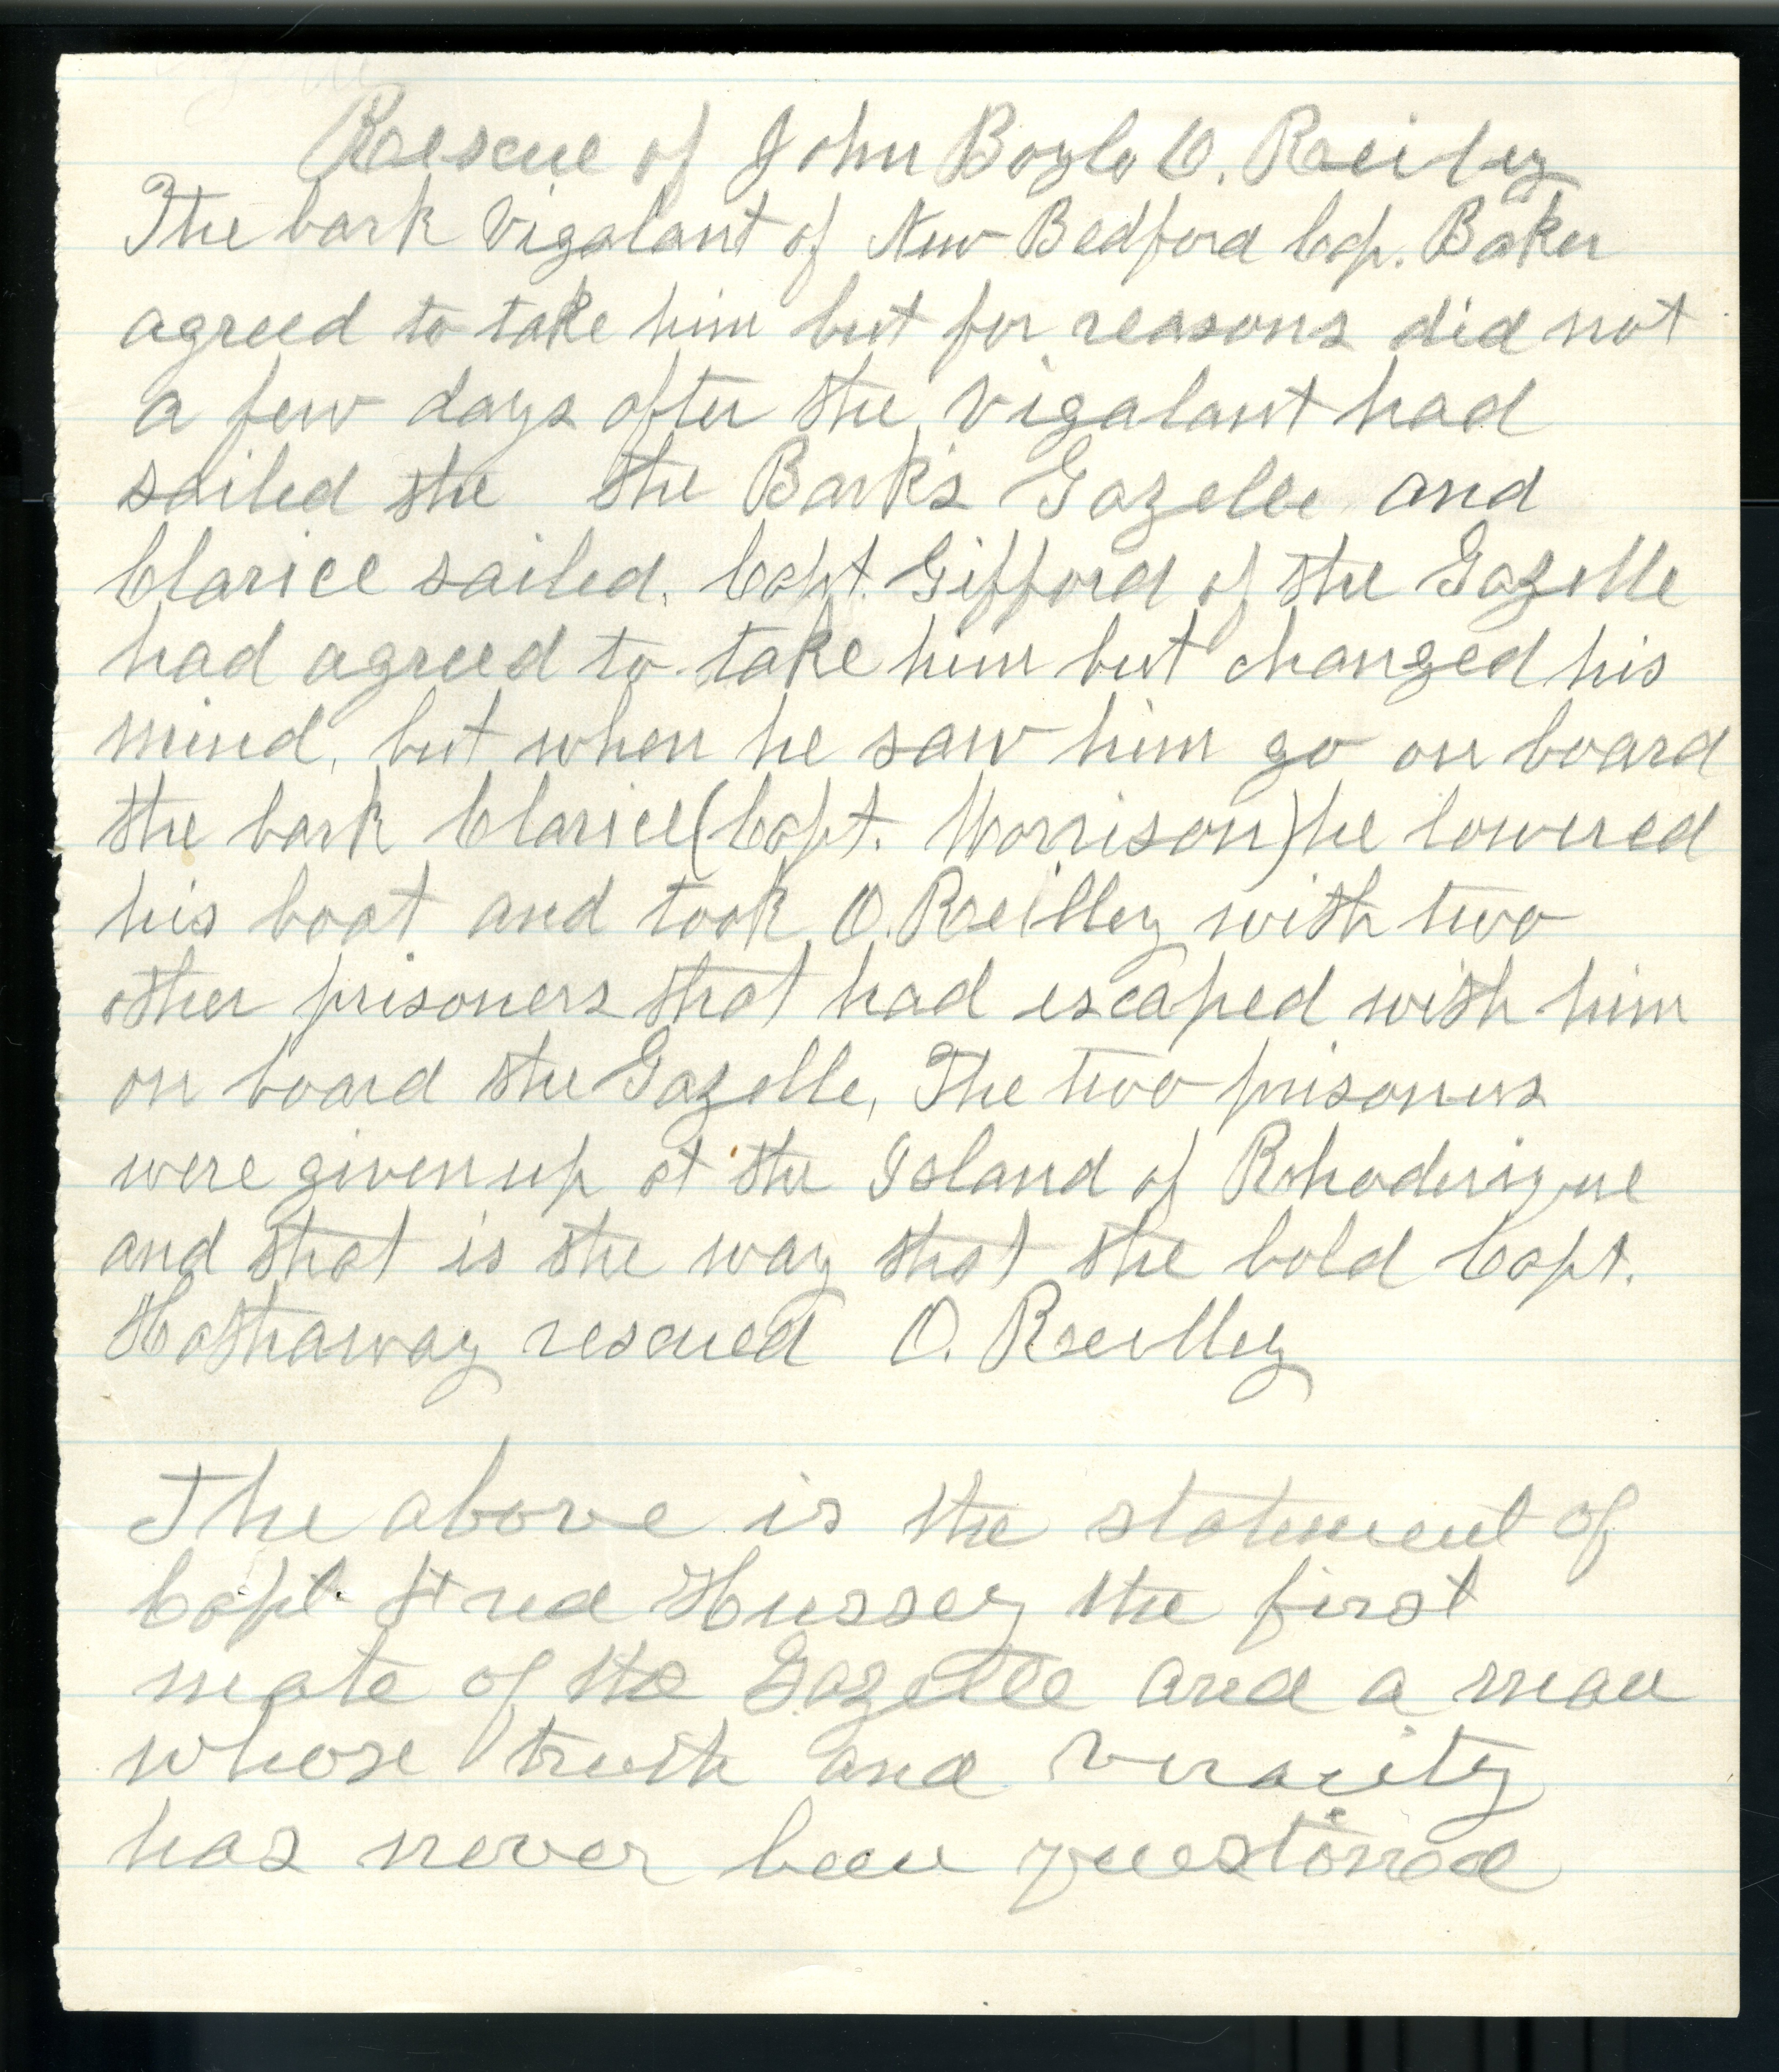 Rescue of John Boyle O. Reiley
The bark Vigalant of New Bedford Cap. Baker
agreed to take him but for reasons did not
a few days after the Vigalant had
sailed the the Bark's Gazelle and
Clarice sailed. Capt. Gifford of the Gazelle
had agreed to take him but changed his
mind, but when he saw him go on board
the bark Clarice (Capt. Morrison) he lowered
his boat and took O. Reilley with two
other prisoners that had escaped with him
on board the Gazelle, The two prisoners
were given up at the Island of Rhoderigue
and that is the way that the bold Capt.
Hathaway rescued O. Reilley
The above is the statement of
Capt. Fred Hussey the first
mate of the Gazelle and a man
whose truth and veracity
has never been questioned